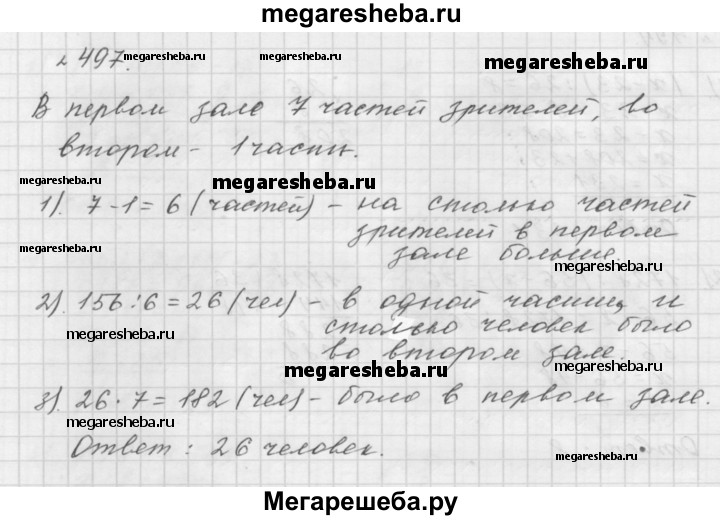 megaresheba.ru
№ 497. megaresheba.ru megaresheba.ru
В первом зале 7 частей зрителей, во
втором - 1 часть.
megaresheba.ru megaresheba.ru
1). 7 - 1 = 6 (частей) - на столько частей
зрителей в первом
megaresheba.ru зале больше.
megaresheba.ru
2). 156 : 6 = 26 (чел) - в одной части и
столько человек было
megaresheba.ru во втором зале.
megaresheba.ru megaresheba.ru
3). 26 · 7 = 182 (чел) - было в первом зале.
megaresheba.ru
Ответ : 26 человек.
megaresheba.ru
Мегарешеба.ру